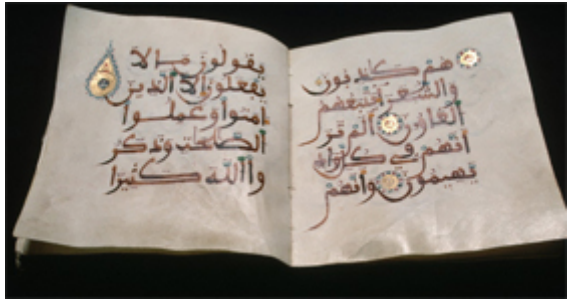 هم كـذبون
والشعرا يتبعهم
الغاون الم تر
أنهم في كل واد
يهيمون وأنهم
يقولون ما لا
يفعلون إلا الذين
ءامنوا وعملوا
الصلحت وذكر
وا الله كثيرا